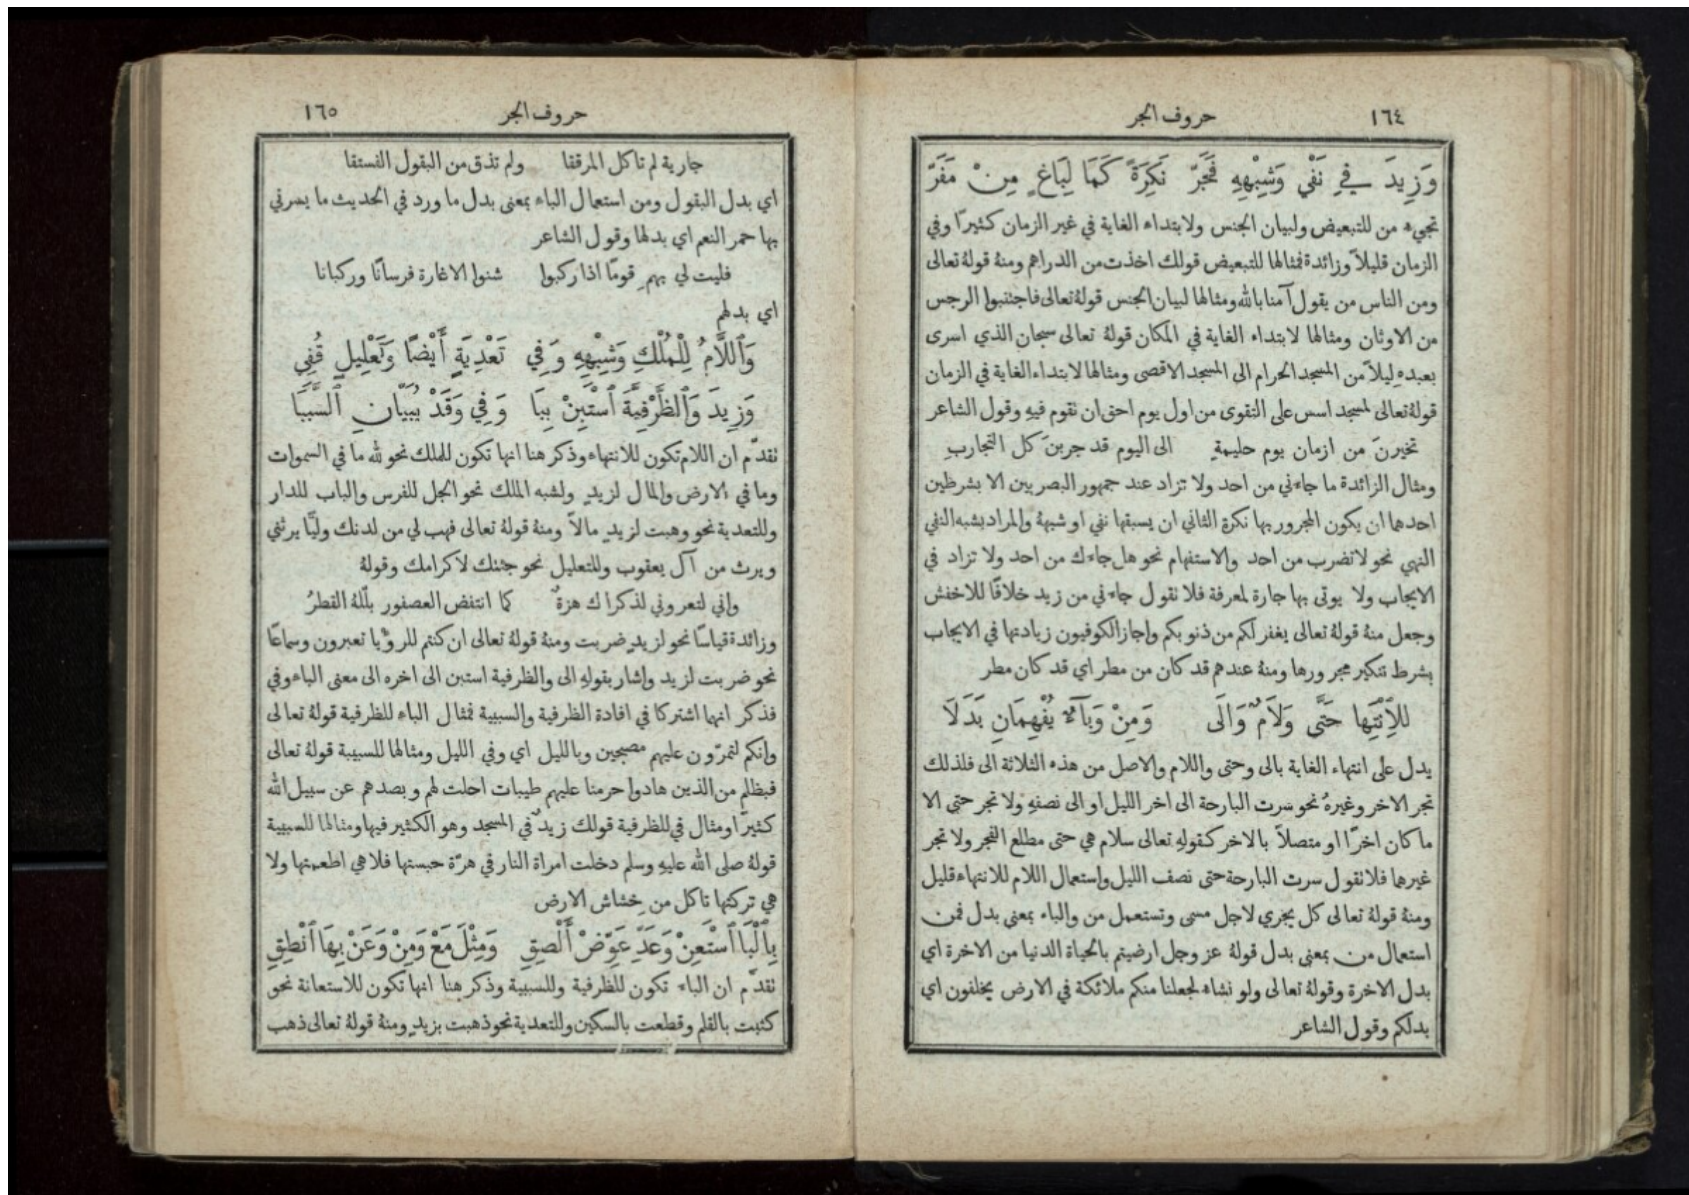 ١٦٤
حروف الجر
وَزِيدَ فِي نَفْيٍ وَشِبْهِهِ فَجَرَّ نَكِرَةً كَمَا لِبَاغٍ مِنْ مَفَرّْ
تجيء من للتبعيض ولبيان الجنس ولابتداء الغاية في غير الزمان كثيرًا وفي
الزمان قليلاً وزائدة فمثالها للتبعيض قولك اخذت من الدراهم ومنهُ قولهُ تعالى
ومن الناس من يقول آمنا بالله ومثالها لبيان الجنس قولهُ تعالى فاجتنبوا الرجس
من الاوثان ومثالها لابتداء الغاية في المكان قولهُ تعالى سبحان الذي اسرى
بعبدهِ ليلاً من المسجد الحرام الى المسجد الاقصى ومثالها لابتداء الغاية في الزمان
قولهُ تعالى لمسجد اسس على التقوى من اول يوم احق ان تقوم فيهِ وقول الشاعر
تخيرنَ من ازمان يوم حليمةٍ الى اليوم قد جربنَ كل التجاربِ
ومثال الزائدة ما جاءني من احد ولا تزاد عند جمهور البصريين الا بشرطين
احدهما ان يكون المجرور بها نكرة الثاني ان يسبقها نفي او شبههُ والمراد بشبه النفي
النهي نحو لا تضرب من احد والاستفهام نحو هل جاءك من احد ولا تزاد في
الايجاب ولا يوتى بها جارة لمعرفة فلا تقول جاءني من زيد خلافًا للاخفش
وجعل منهُ قولهُ تعالى يغفر لكم من ذنوبكم واجاز الكوفيون زيادتها في الايجاب
بشرط تنكير مجرورها ومنهُ عندهم قد كان من مطر اي قد كان مطر
لِلاِنْتِهَا حَتَّى وَلاَمٌ وَالَى وَمِنْ وَبَآءٌ يُفْهِمَانِ بَدَلاَ
يدل على انتهاء الغاية بالى وحتى واللام والاصل من هذه الثلاثة الى فلذلك
تجر الاخر وغيرهُ نحو سرت البارحة الى اخر الليل او الى نصفهِ ولا تجر حتى الا
ما كان اخرًا او متصلاً بالاخر كقولهِ تعالى سلام هي حتى مطلع الفجر ولا تجر
غيرهما فلا تقول سرت البارحة حتى نصف الليل واستعمال اللام للانتهاء قليل
ومنهُ قولهُ تعالى كل يجري لاجل مسمى وتستعمل من والباء بمعنى بدل فمن
استعمال من بمعنى بدل قولهُ عز وجل ارضيتم بالحياة الدنيا من الاخرة اي
بدل الاخرة وقولهُ تعالى ولو نشاء لجعلنا منكم ملائكة في الارض يخلفون اي
بدلكم وقول الشاعر
١٦٥
حروف الجر
جارية لم تاكل المرققا ولم تذق من البقول الفستقا
اي بدل البقول ومن استعمال الباء بمعنى بدل ما ورد في الحديث ما يسرني
بها حمر النعم اي بدلها وقول الشاعر
فليت لي بهمِ قومًا اذا ركبوا شنوا الاغارة فرسانًا وركبانا
اي بدلهم
وَاللَّامُ لِلْمُلْكِ وَشِبْهِهِ وَفِي تَعْدِيَةٍ أَيْضًا وَتَعْلِيلٍ قُفِي
وَزِيدَ وَالظَّرْفِيَّةَ اسْتَبِنْ بِبَا وَفِي وَقَدْ يُبَيِّانِ السَّبَبَا
تقدّم ان اللام تكون للانتهاء وذكر هنا انها تكون للملك نحو لله ما في السموات
وما في الارض والمال لزيدٍ ولشبه الملك نحو الجل للفرس والباب للدار
وللتعدية نحو وهبت لزيدٍ مالاً ومنهُ قولهُ تعالى فهب لي من لدنك وليًّا يرثني
ويرث من آل يعقوب وللتعليل نحو جئتك لاكرامك وقولهُ
واني لتعروني لذكراك هزةٌ كما انتفض العصفور بلّلهُ القطرُ
وزائدة قياسًا نحو لزيدٍ ضربت ومنهُ قولهُ تعالى ان كنتم للرؤيا تعبرون وسماعًا
نحو ضربت لزيد واشار بقولهِ الى والظرفية استبن الى اخره الى معنى الباء وفي
فذكر انهما اشتركا في افادة الظرفية والسببية فمثال الباء للظرفية قولهُ تعالى
وانكم لتمرّون عليهم مصبحين وبالليل اي وفي الليل ومثالها للسببية قولهُ تعالى
فبظلمٍ من الذين هادوا حرمنا عليهم طيبات احلت لهم وبصدهم عن سبيل الله
كثيرًا ومثال في للظرفية قولك زيدٌ في المسجد وهو الكثير فيها ومثالها للسببية
قولهُ صلى الله عليهِ وسلم دخلت امراة النار في هرّة حبستها فلا هي اطعمتها ولا
هي تركتها تاكل من خِشاش الارض
بِالْبَا اسْتَعِنْ وَعَدِّ عَوِّضْ أَلْصِقِ وَمِثْلَ مَعْ وَمِنْ وَعَنْ بِهَا انْطِقِ
تقدّم ان الباء تكون للظرفية وللسببية وذكر هنا انها تكون للاستعانة نحو
كتبت بالقلم وقطعت بالسكين وللتعدية نحو ذهبت بزيدٍ ومنهُ قولهُ تعالى ذهب